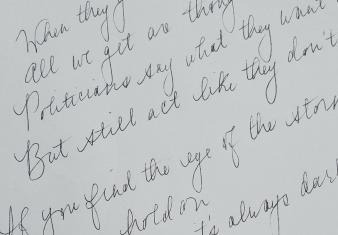 When they
All we get are
Politicians say what they want
But still act like they don't
If you find the eye of the storm
hold on
it's always dark